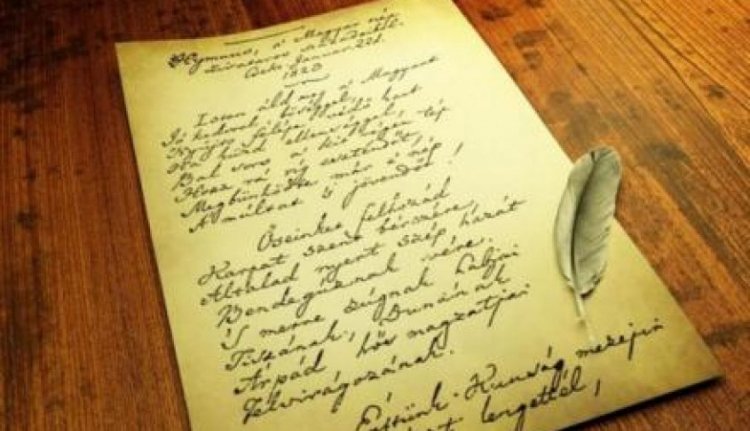 Hymnus, a' Magyar nép
zivataros századaiból.
Cseke, Januar. 22d.
1823
Isten áldd meg a' Magyart
Jó kedvvel, bőséggel,
Nyújts feléje védő kart
Ha küzd ellenséggel;
Bal sors a' kit régen tép
Hozz rá víg esztendőt,
Megbünhödte már e' nép
A' multat 's jövendőt!
Őseinket felhozád
Kárpát szent bérczére,
Általad nyert szép hazát
Bendegúznak vére.
'S merre zúgnak habjai
Tiszának, Dunának
Árpád hős magzatjai
Felvirágozának.
Értünk Kunság mezejin
lengettél,